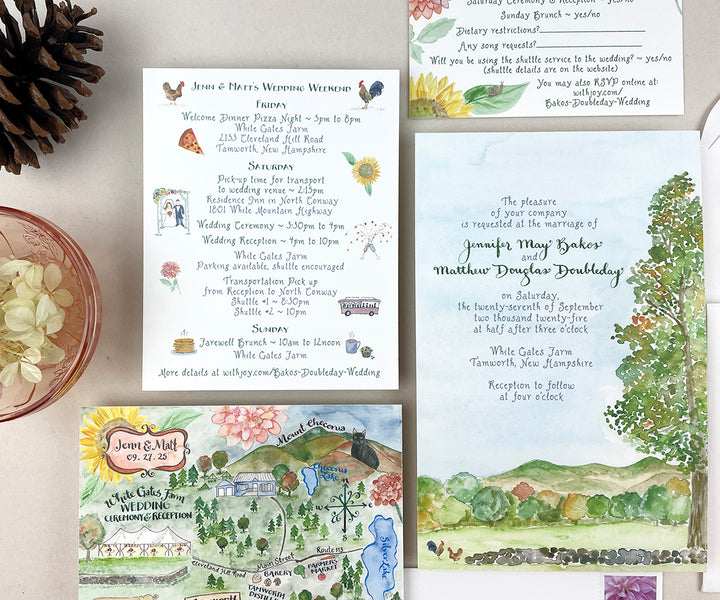 Jenn & Matt's Wedding Weekend
Friday
Welcome Dinner Pizza Night ~ 5pm to 8pm
White Gates Farm
2153 Cleveland Hill Road
Tamworth, New Hampshire
Saturday
Pick-up time for transport
to wedding venue ~ 2:15pm
Residence Inn in North Conway
1801 White Mountain Highway
Wedding Ceremony ~ 3:30pm to 4pm
Wedding Reception ~ 4pm to 10pm
White Gates Farm
Parking available, shuttle encouraged
Transportation Pick up
from Reception to North Conway
Shuttle #1 ~ 8:30pm
Shuttle #2 ~ 10pm
Sunday
Farewell Brunch ~ 10am to 12noon
White Gates Farm
More details at withjoy.com/Bakos-Doubleday-Wedding
Saturday Ceremony & Reception ~ yes/no
Sunday Brunch ~ yes/no
Dietary restrictions?
Any song requests?
Will you be using the shuttle service to the wedding? ~ yes/no
(shuttle details are on the website)
You may also RSVP online at:
withjoy.com/
Bakos-Doubleday-Wedding
The pleasure
of your company
is requested at the marriage of
Jennifer May Bakos
and
Matthew Douglas Doubleday
on Saturday,
the twenty-seventh of September
two thousand twenty-five
at half after three o'clock
White Gates Farm
Tamworth, New Hampshire
Reception to follow
at four o'clock
Jenn & Matt
09.27.25
Mount Chocorua
Chocorua
Lake
White Gates Farm
WEDDING
CEREMONY & RECEPTION
N
W
E
S
Silver Lake
Main Street
Route 113
Cleveland Hill Road
BAKERY
FARMERS
MARKET
TAMWORTH